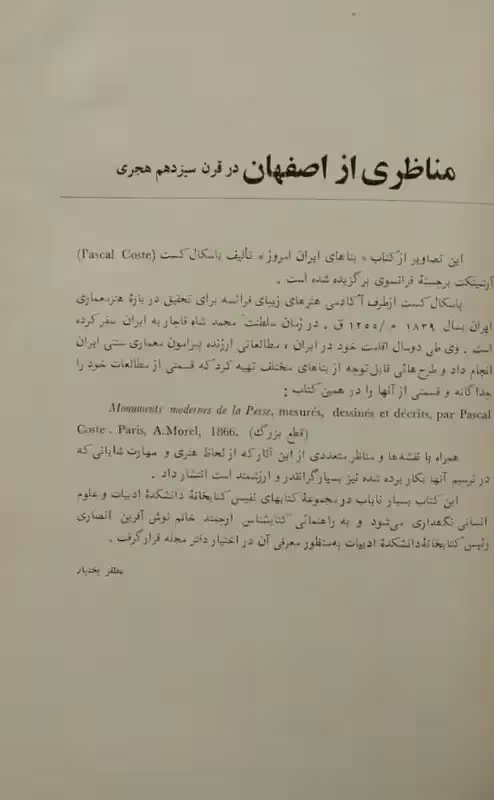 مناظری از اصفهان در قرن سیزدهم هجری
این تصاویر از کتاب « بناهای ایران امروز » تألیف پاسکال کست (Pascal Coste)
آرشیتکت برجستهٔ فرانسوی برگزیده شده است .
پاسکال کست ازطرف آکادمی هنرهای زیبای فرانسه برای تحقیق در بارهٔ هنرمعماری
ایران بسال ۱۸۳۹ م /۱۲۵۵ ق . در زمان سلطنت محمد شاه قاجار به ایران سفر کرده
است . وی طی دوسال اقامت خود در ایران ، مطالعاتی ارزنده پیرامون معماری سنتی ایران
انجام داد و طرح‌هائی قابل توجه از بناهای مختلف تهیه کرد که قسمتی از مطالعات خود را
جداگانه و قسمتی از آنها را در همین کتاب :
Monuments modernes de la Perse, mesurés, dessinés et décrits, par Pascal
Coste . Paris, A.Morel, 1866. (قطع بزرگ)
همراه با نقشه‌ها و مناظر متعددی از این آثار که از لحاظ هنری و مهارت شایانی که
در ترسیم آنها بکار برده شده نیز بسیار گرانقدر و ارزشمند است انتشار داد .
این کتاب بسیار نایاب در مجموعهٔ کتابهای نفیس کتابخانهٔ دانشکدهٔ ادبیات و علوم
انسانی نگهداری می‌شود و به راهنمائی کتابشناس ارجمند خانم نوش آفرین انصاری
رئیس کتابخانهٔ دانشکدهٔ ادبیات به‌منظور معرفی آن در اختیار دفتر مجله قرار گرفت .
مظفر بختیار